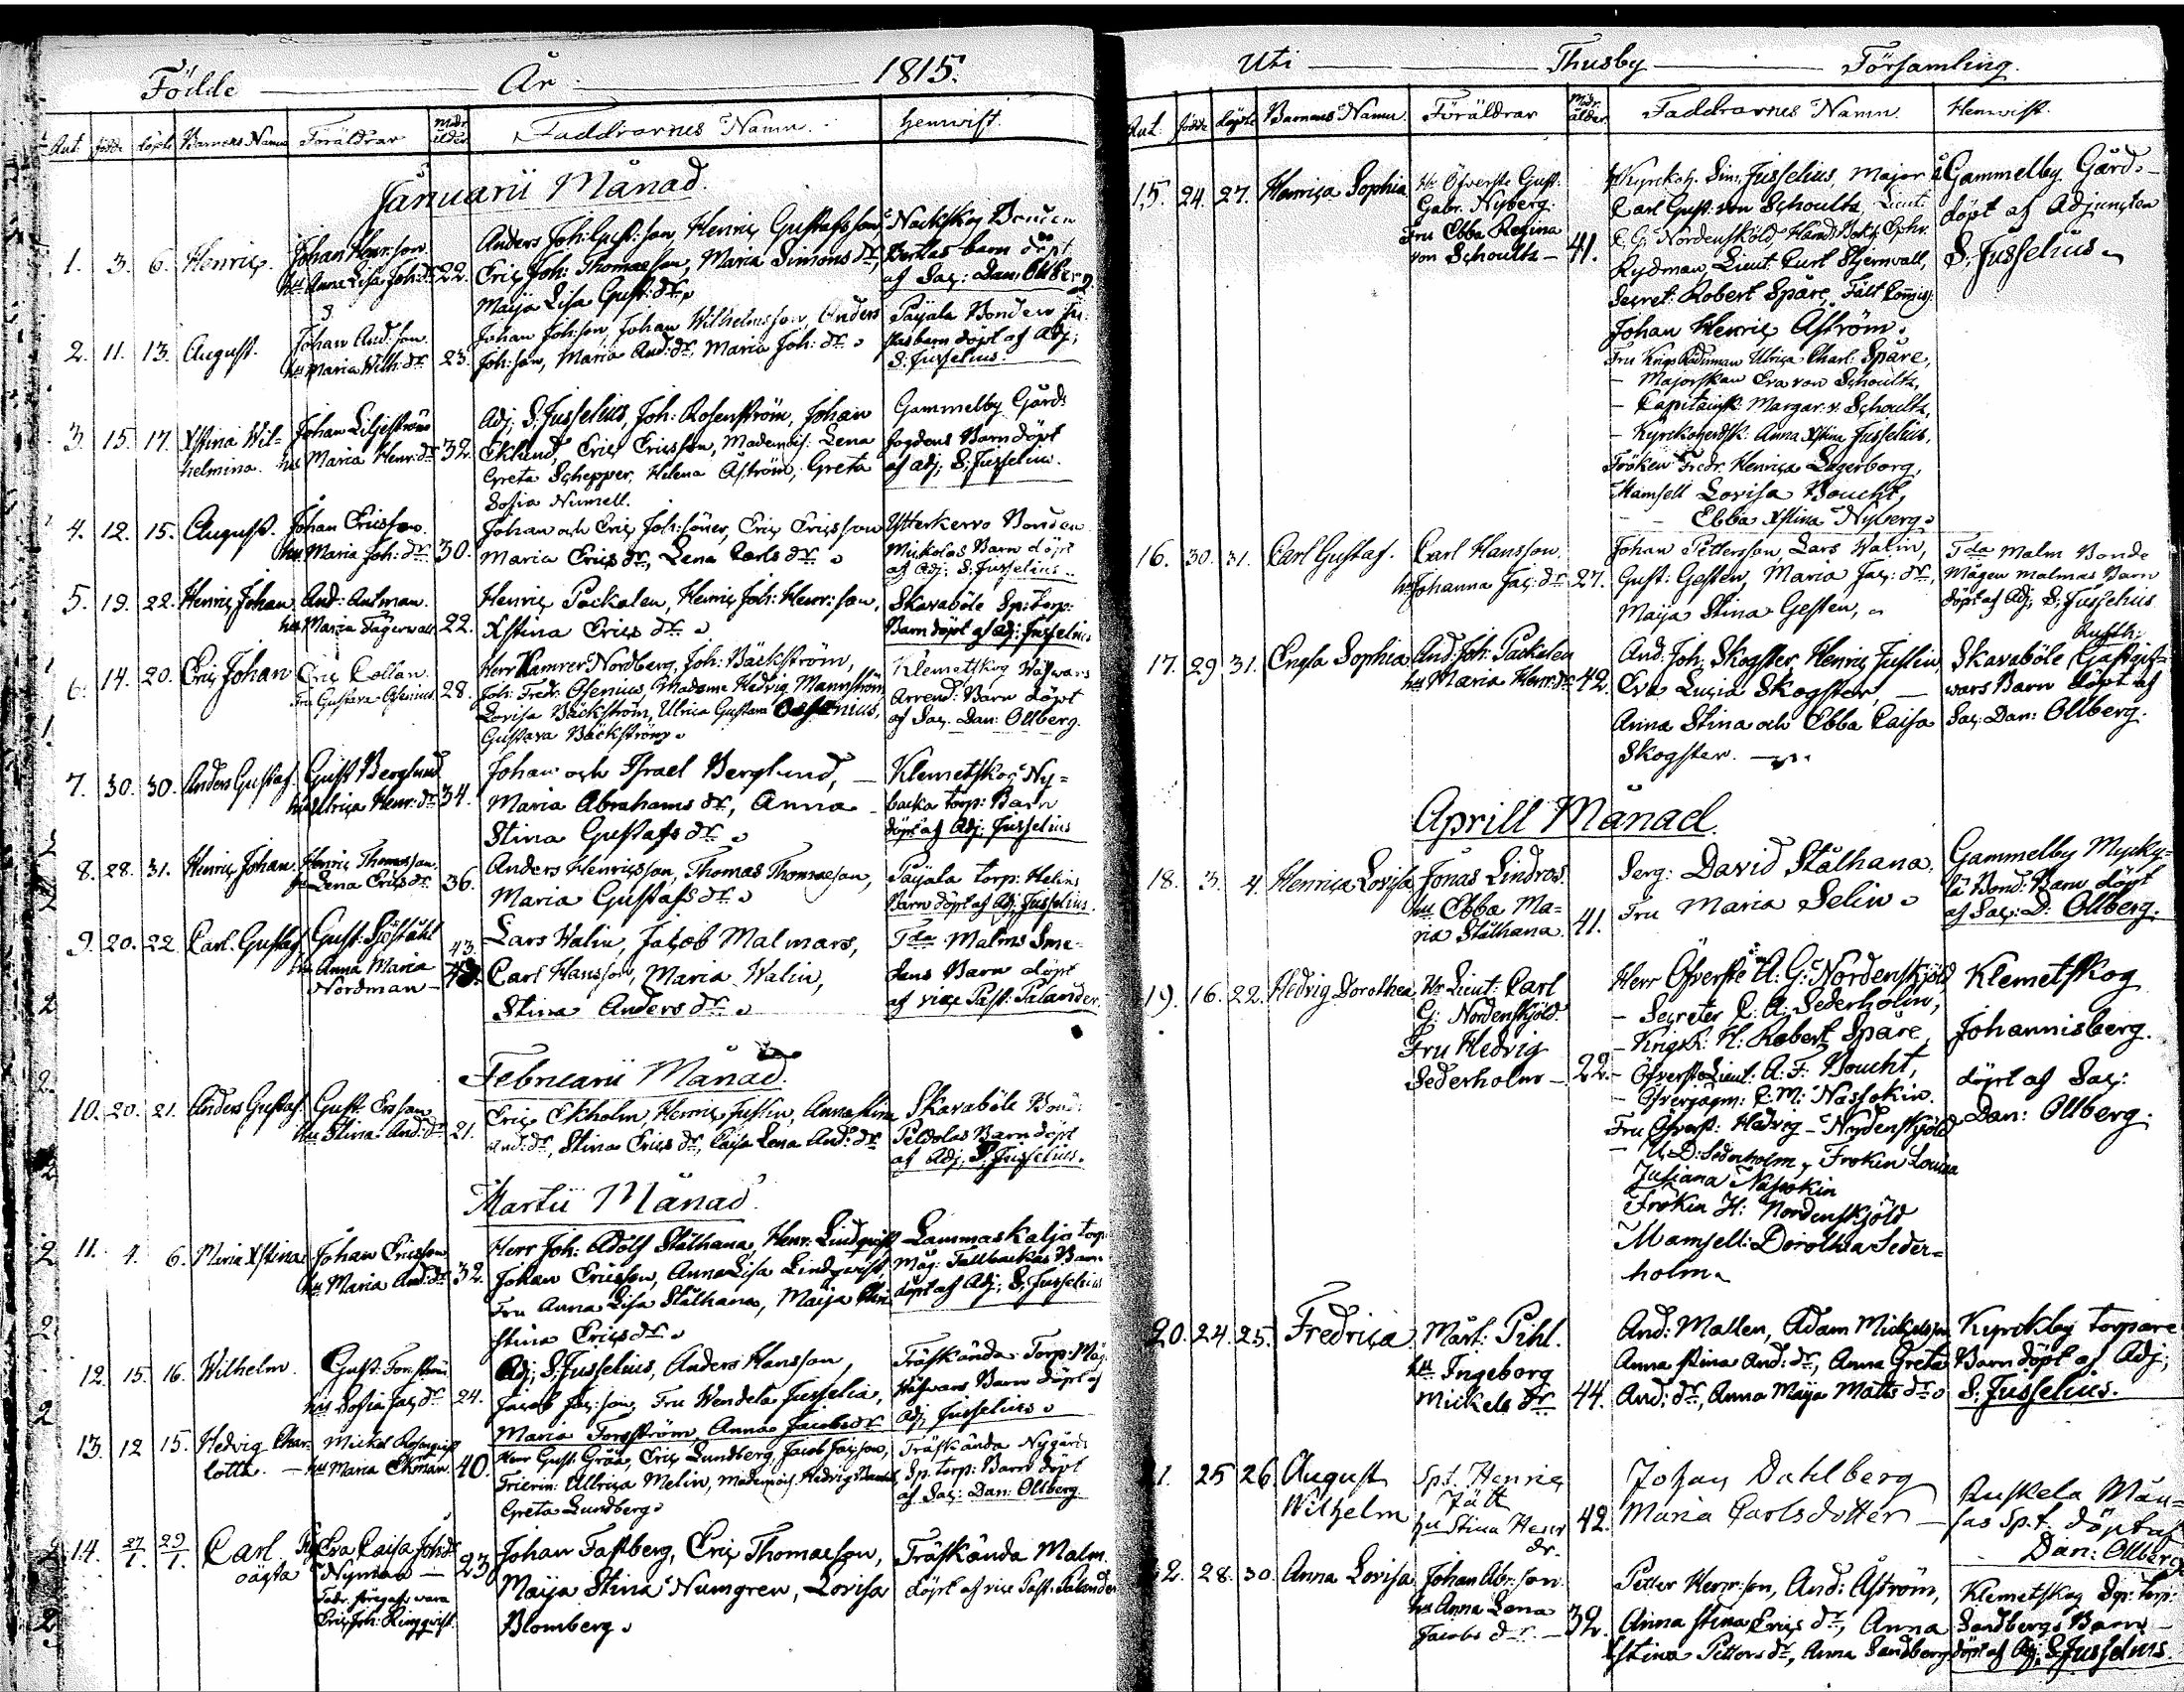 Födde År 1815.
Ant. födde döpte Barnens Namn Föräldrar Modr. ålder Faddrarnes Namn. hemvist.
Januarii Månad.
1. 3. 6. Henric. Johan Henr:son hu Anna Lisa Joh:dr 22.
Anders Joh: Gust:son, Henric Gustafsson,
Eric Joh: Thomasson, Maria Simons dr,
Maija Lisa Gust:dr
Nackskog Bonden
barn döpt
af Sac: Dan: Ollberg.
2. 11. 13. August. Johan And:son hu Maria Wilh:dr 23.
Johan Joh:son, Johan Wilhelmsson, Anders
Joh:son, Maria And:dr, Maria Joh:dr
Paijala Bonden
barn döpt af Adj:
S: Jusselius.
3. 15. 17. Xstina Wil=
helmina.
Johan Liljeström
hu Maria Henr:dr 32.
Adj: S: Jusselius, Joh: Rosenström, Johan
Eklund, Eric Ericsson, Mademois: Lena
Greta Schepper, Helena Åström, Greta
Sofia Numell.
Gammelby Gårds
fogdens Barn döpt
af adj: S: Jusselius.
4. 12. 15. August. Johan Ericsson.
hu Maria Joh:dr 30.
Johan och Eric Joh:söner, Eric Ericsson
Maria Erics dr, Lena Carls dr
Ytterkervo Bonden
Mickolas Barn döpt
af Adj: S: Jusselius.
5. 19. 22. Henric Johan And: Antman.
hu Maria Fagerwall 22.
Henric Packalen, Henric Joh: Henr:son,
Xstina Erics dr
Skavaböle Sp:torp:
Barn döpt af adj: Jusselius
6. 14. 20. Eric Johan Eric Collan.
Fru Gustava Osenius 28.
Herr Kamrer Nordberg, Joh: Bäckström,
Joh: Fredr: Osenius, Madame Hedvig Mannström
Lovisa Bäckström, Ulrica Gustava Osenius,
Gustava Bäckström
Klemetskog
Arrend: Barn döpt
af Sac: Dan: Ollberg.
7. 30. 30. Anders Gustaf. Gust Berglund
hu Ulrica Henr:dr 34.
Johan och Israel Berglund, —
Maria Abrahams dr, Anna
Stina Gustafs dr
Klemetskog Ny=
backa torp: Barn
döpt af Adj: Jusselius
8. 28. 31. Henric Johan. Henric Thomasson.
hu Lena Erics dr. 36.
Anders Henricsson, Thomas Thomasson,
Maria Gustafs dr
Paijala torp: Helins
Barn döpt af Adj: Jusselius.
9. 20. 22. Carl Gustaf Gust: Sjöståhl
hu Anna Maria
Nordman — 43.
Lars Walin, Jacob Malmars,
Carl Hansson, Maria Walin,
Stina Anders dr
Tda Malms Sme=
dens Barn döpt
af vice Past: Palander.
Februarii Månad.
10. 20. 21. Anders Gustaf. Gust: Ersson
hu Stina And:dr 21.
Eric Ekholm, Henric Juslin, Anna Stina
And:dr, Stina Erics dr, Caisa Lena And:dr
Skavaböle Bond:
Peldolas Barn döpt
af Adj: S: Jusselius.
Martii Månad.
11. 4. 6. Maria Xstina Johan Ericsson
hu Maria And:dr 32.
Herr Joh: Adolf Stålhana, Henr: Lindqvist
Johan Ericsson, Anna Lisa Lindqvist
Fru Anna Lisa Stålhana, Maija Chri
stina Erics dr
Lammaskaljo torp:
Måg: Tallbackas Barn
döpt af Adj: S: Jusselius
12. 15. 16. Wilhelm. Gust: Forsström
hu Sofia Jac:dr 24.
Adj: S: Jusselius, Anders Hansson,
Jacob Jac:son, Fru Wendela Jusselia,
Maria Forsström, Anna Jacobsdr
Träskända Torp: Måg.
Barn döpt af
Adj Jusselius
13. 12 15. Hedvig Char=
lotta. —
Mickel Rosenqvist
hu Maria Ekman. 40.
Herr Gust: Gråå, Eric Lundberg, Jacob Jac:son,
Ullrica Melin, Mademois: Hedvig
Greta Lundberg
Träskända Nygårds
Sp. torp: Barn döpt
af Sac: Dan: Ollberg.
14. 27/1. 29/1. Carl
oägta
Pig Eva Caisa Joh:dr
Nyman — 23
Fadr. föregafs vara
Eric Joh: Ringqvist.
Johan Fastberg, Eric Thomasson,
Maija Stina Numgren, Lovisa
Blomberg
Träskända Malm.
döpt af vice Past: Palander
Uti Thusby Församling.
Ant. födde döpte Barnens Namn Föräldrar Modr. ålder. Faddrarnes Namn. Hemvist.
15. 24. 27. Henrica Sophia Hr Öfverste Gust:
Gabr. Nyberg.
Fru Ebba Regina
von Schoultz — 41.
Kyrckoh. Sim: Jusselius, Major
Carl Gust: von Schoultz, Lieut:
C. G: Nordenskjöld, Hand: Bokh: Ephr.
Rydman, Lieut: Carl Stjernvall,
Secret: Robert Spåre, Fält Comiss:
Johan Henric Aström.
Fru Krigs Rådinnan Ulrica Charl: Spåre,
— Majorskan Eva von Schoultz,
— Capitainsk: Margar: v. Schoultz,
— Kyrckoherdsk: Anna Xstina Jusselius,
Fröken Fredr. Henrica Lagerborg,
Mamsell Lovisa Boucht,
— — Ebba Xstina Nyberg
Gammelby Gård. —
döpt af Adjuncten
S: Jusselius
16. 30. 31. Carl Gustaf. Carl Hansson.
hu Johanna Jac:dr 27.
Johan Pettersson, Lars Walin,
Gust: Gesten, Maria Jac:dr,
Maija Stina Gesten,
Tda Malm Bonde
Mågen Malmas Barn
döpt af Adj: S: Jusselius
17. 29 31. Engla Sophia And: Joh: Packalen
hu Maria Henr:dr 42.
And: Joh: Skogster, Henric Juslin,
Eva Lucia Skogster, —
Anna Stina och Ebba Caisa
Skogster. —
Skavaböle Gästgif=
vars Barn döpt af
Sac: Dan: Ollberg.
Aprill Månad.
18. 3. 4. Henrica Lovisa Jonas Lindros.
hu Ebba Ma=
ria Stålhana. 41.
Serg: David Stålhana.
Fru Maria Selin
Gammelby Mycky=
lä Bond: Barn döpt
af Sac: D: Ollberg.
19. 16. 22. Hedvig Dorothea Hr Lieut: Carl
G: Nordenskjöld.
Fru Hedvig
Sederholm — 22.
Herr Öfverste A: G: Nordenskjöld
— Secreter C. A: Sederholm,
— KrigsR: H: Robert Spåre,
— Öfverste Lieut: A: F: Boucht,
— Öfverjägm: C. M: Nassokin.
Fru Öfverst: Hedvig — Nordenskjöld
— U: D: Sederholm, Fröken Lovisa
Juliana Nassokin
Fröken H: Nordenskjöld
Mamsell: Dorothea Seder=
holm
Klemetskog
Johannisberg.
döpt af Sac:
Dan: Ollberg.
20. 24. 25. Fredrica Mårt: Pihl.
hu Ingeborg
Mickels dr 44.
And: Mallen, Adam Mickelsson
Anna Stina And:dr, Anna Greta
And:dr, Anna Maija Matts dr
Kyrckby torpare
Barn döpt af Adj:
S: Jusselius.
21. 25 26 August
Wilhelm
Spt. Henric
Jätt
hu Stina Henr
dr. 42.
Johan Dahlberg
Maria Carlsdotter —
Ruskela Män=
sas Sp.t. döpt af
Dan: Ollberg
22. 28. 30. Anna Lovisa Johan Abr:son.
hu Anna Lena
Jacobs dr — 32.
Petter Henr:son, And: Åström,
Anna Stina Erics dr, Anna
Xstina Petters dr, Anna Sandberg
Klemetskog Sp: torp:
Sandbergs Barn —
döpt af Adj: S: Jusselius.